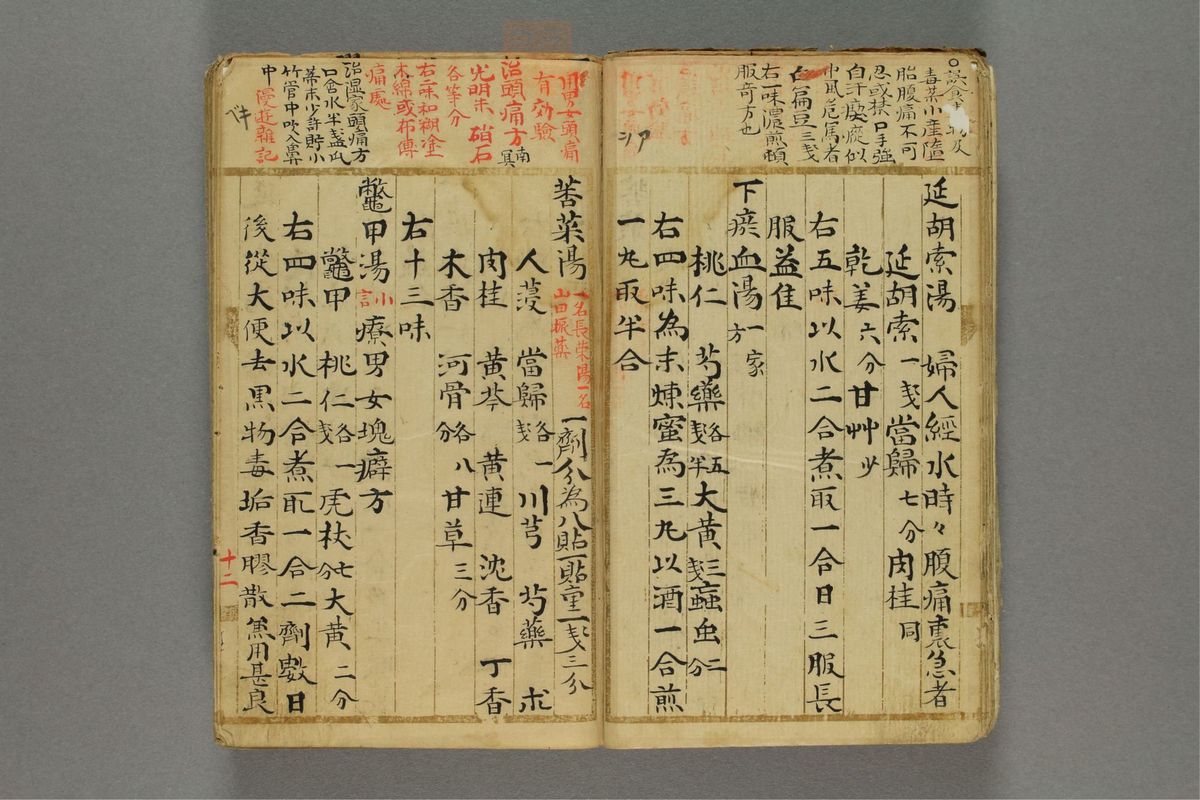 誤食
毒菜小産墮
胎腹痛不可
忍或禁口手強
自汗痙瘲似
中風危篤者
白扁豆三戔
右一味濃煎頓
服奇方也
シア
延胡索湯 婦人經水時々腹痛裏急者
延胡索一戔當歸七分肉桂同
乾姜六分甘艸少
右五味以水二合煮取一合日三服長
服益佳
下瘀血湯一家方
桃仁 芍藥各五戔半大黃三戔蝱虫二分
右四味為末煉蜜為三丸以酒一合煎
一丸取半合
用男女頭痛
有効驗
治頭痛方
光明朱 硝石
各等分
右二味和糊塗
木綿或布傳
痛處
治濕家頭痛方
口含水半盞瓜
蒂末少許貯小
竹管中吹入鼻
中 漫遊雜記
ベキ
莕菜湯 一名長栄湯一名山田振薬 一劑分為八貼一貼重一戔三分
人蓡 當歸各一戔川芎 芍藥 朮
肉桂 黃芩 黃連 沈香 丁香
木香 河骨各八分甘草三分
右十三味
鼈甲湯 小訂 療男女塊癖方
鼈甲 桃仁各一戔虎杖七分大黃二分
右四味以水二合煮取一合二劑數日
後從大便去黑物毒垢香膠散兼用甚良
十二